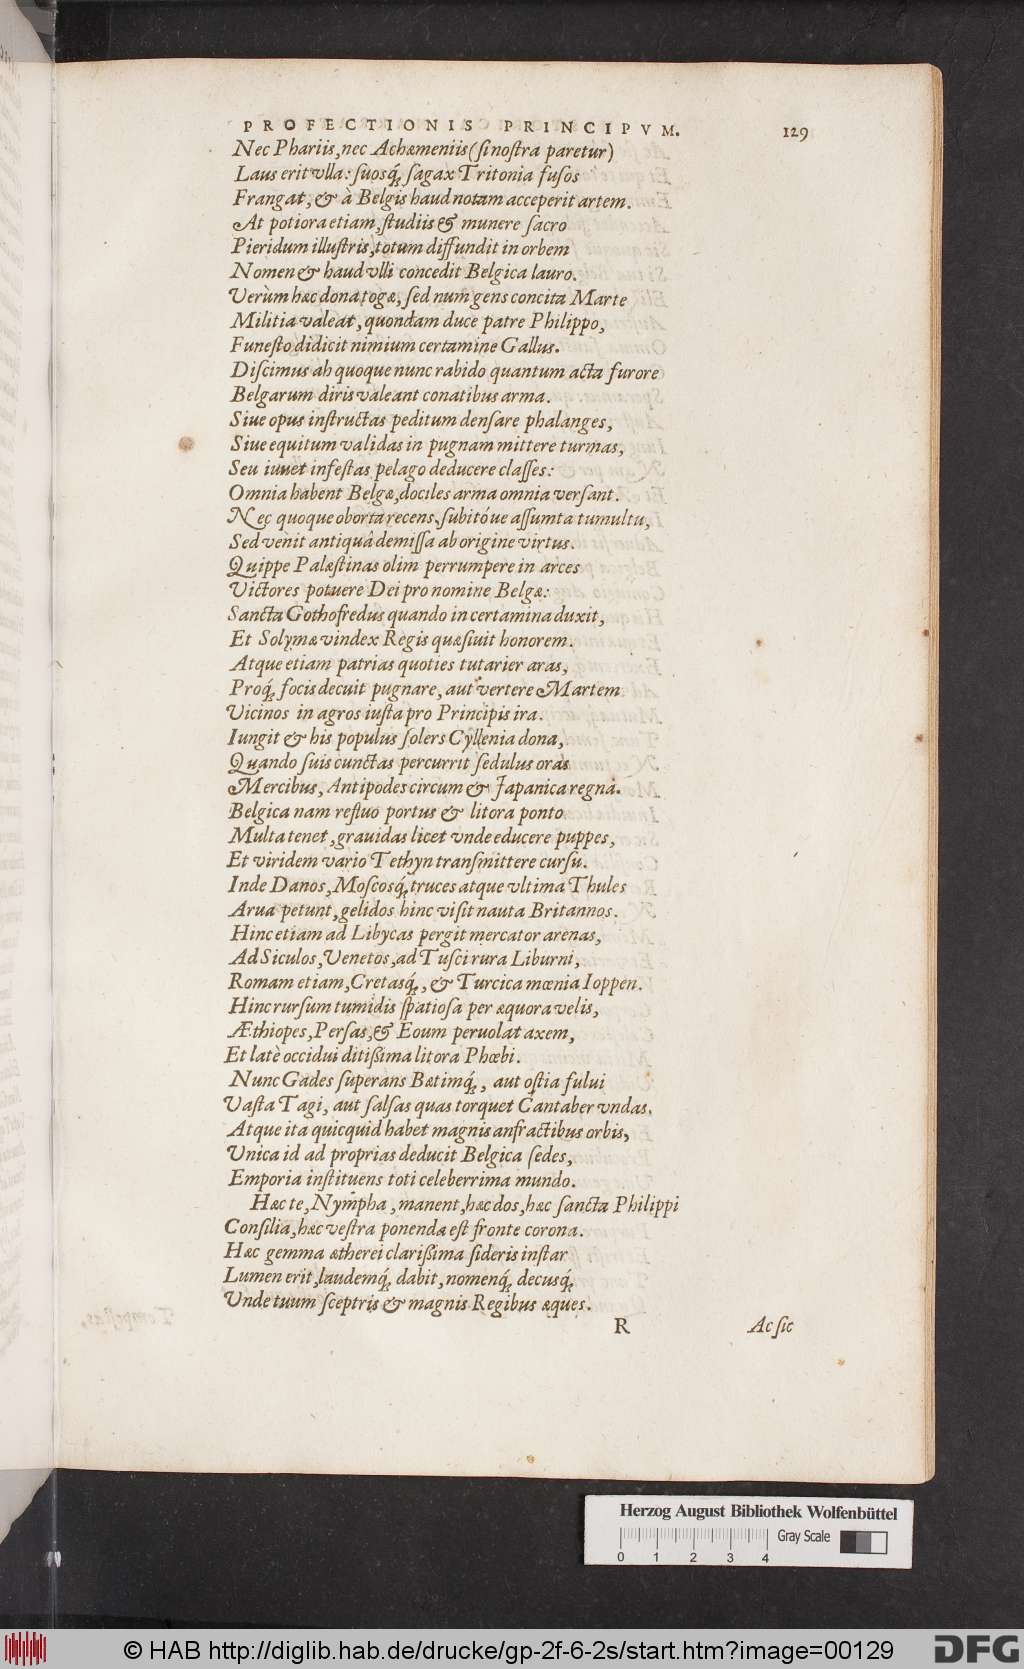 PROFECTIONIS PRINCIPVM. 129
Nec Phariis, nec Achæmeniis (si nostra paretur)
Laus erit vlla: suosq́; sagax Tritonia fusos
Frangat, & à Belgis haud notam acceperit artem.
At potiora etiam, studiis & munere sacro
Pieridum illustris, totum diffundit in orbem
Nomen & haud vlli concedit Belgica lauro.
Verùm hæc dona togæ, sed num gens concita Marte
Militia valeat, quondam duce patre Philippo,
Funesto didicit nimium certamine Gallus.
Discimus ah quoque nunc rabido quantum acta furore
Belgarum diris valeant conatibus arma.
Siue opus instructas peditum densare phalanges,
Siue equitum validas in pugnam mittere turmas,
Seu iuuet infestas pelago deducere classes:
Omnia habent Belgæ, dociles arma omnia versant.
Nec quoque oborta recens, subitóue assumta tumultu,
Sed venit antiquâ demissa ab origine virtus.
Quippe Palæstinas olim perrumpere in arces
Victores potuere Dei pro nomine Belgæ:
Sancta Gothofredus quando in certamina duxit,
Et Solymæ vindex Regis quæsiuit honorem.
Atque etiam patrias quoties tutarier aras,
Proq́; focis decuit pugnare, aut vertere Martem
Vicinos in agros iusta pro Principis ira.
Iungit & his populus solers Cyllenia dona,
Quando suis cunctas percurrit sedulus oras
Mercibus, Antipodes circum & Japanica regna.
Belgica nam refluo portus & litora ponto
Multa tenet, grauidas licet vnde educere puppes,
Et viridem vario Tethyn transmittere cursu.
Inde Danos, Moscosq́; truces atque vltima Thules
Arua petunt, gelidos hinc visit nauta Britannos.
Hinc etiam ad Libycas pergit mercator arenas,
Ad Siculos, Venetos, ad Tusci rura Liburni,
Romam etiam, Cretasq́;, & Turcica mœnia Ioppen.
Hinc rursum tumidis spatiosa per æquora velis,
Æthiopes, Persas, & Eoum peruolat axem,
Et latè occidui ditißima litora Phœbi.
Nunc Gades superans Bætimq́;, aut ostia fului
Vasta Tagi, aut salsas quas torquet Cantaber vndas.
Atque ita quicquid habet magnis anfractibus orbis,
Unica id ad proprias deducit Belgica sedes,
Emporia instituens toti celeberrima mundo.
Hæc te, Nympha, manent, hæc dos, hæc sancta Philippi
Consilia, hæc vestra ponenda est fronte corona.
Hæc gemma ætherei clarißima sideris instar
Lumen erit, laudemq́; dabit, nomenq́; decusq́;
Unde tuum sceptris & magnis Regibus æques.
R Ac sic
Herzog August Bibliothek Wolfenbüttel
Gray Scale
0 1 2 3 4
© HAB http://diglib.hab.de/drucke/gp-2f-6-2s/start.htm?image=00129
DFG